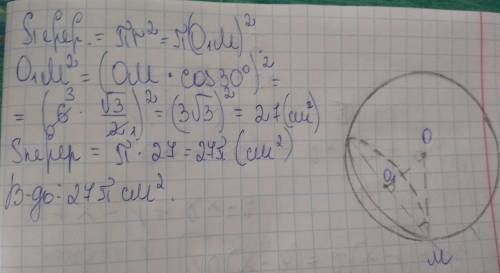 Sпереp. = πr² = π(O₁M)²
O₁M² = (OM · cos30°)² =
= (6³ · √3/2₁)² = (3√3)² = 27(см²)
Sпереp = π · 27 = 27π (см²)
В-дь: 27π см².
O
O₁
M